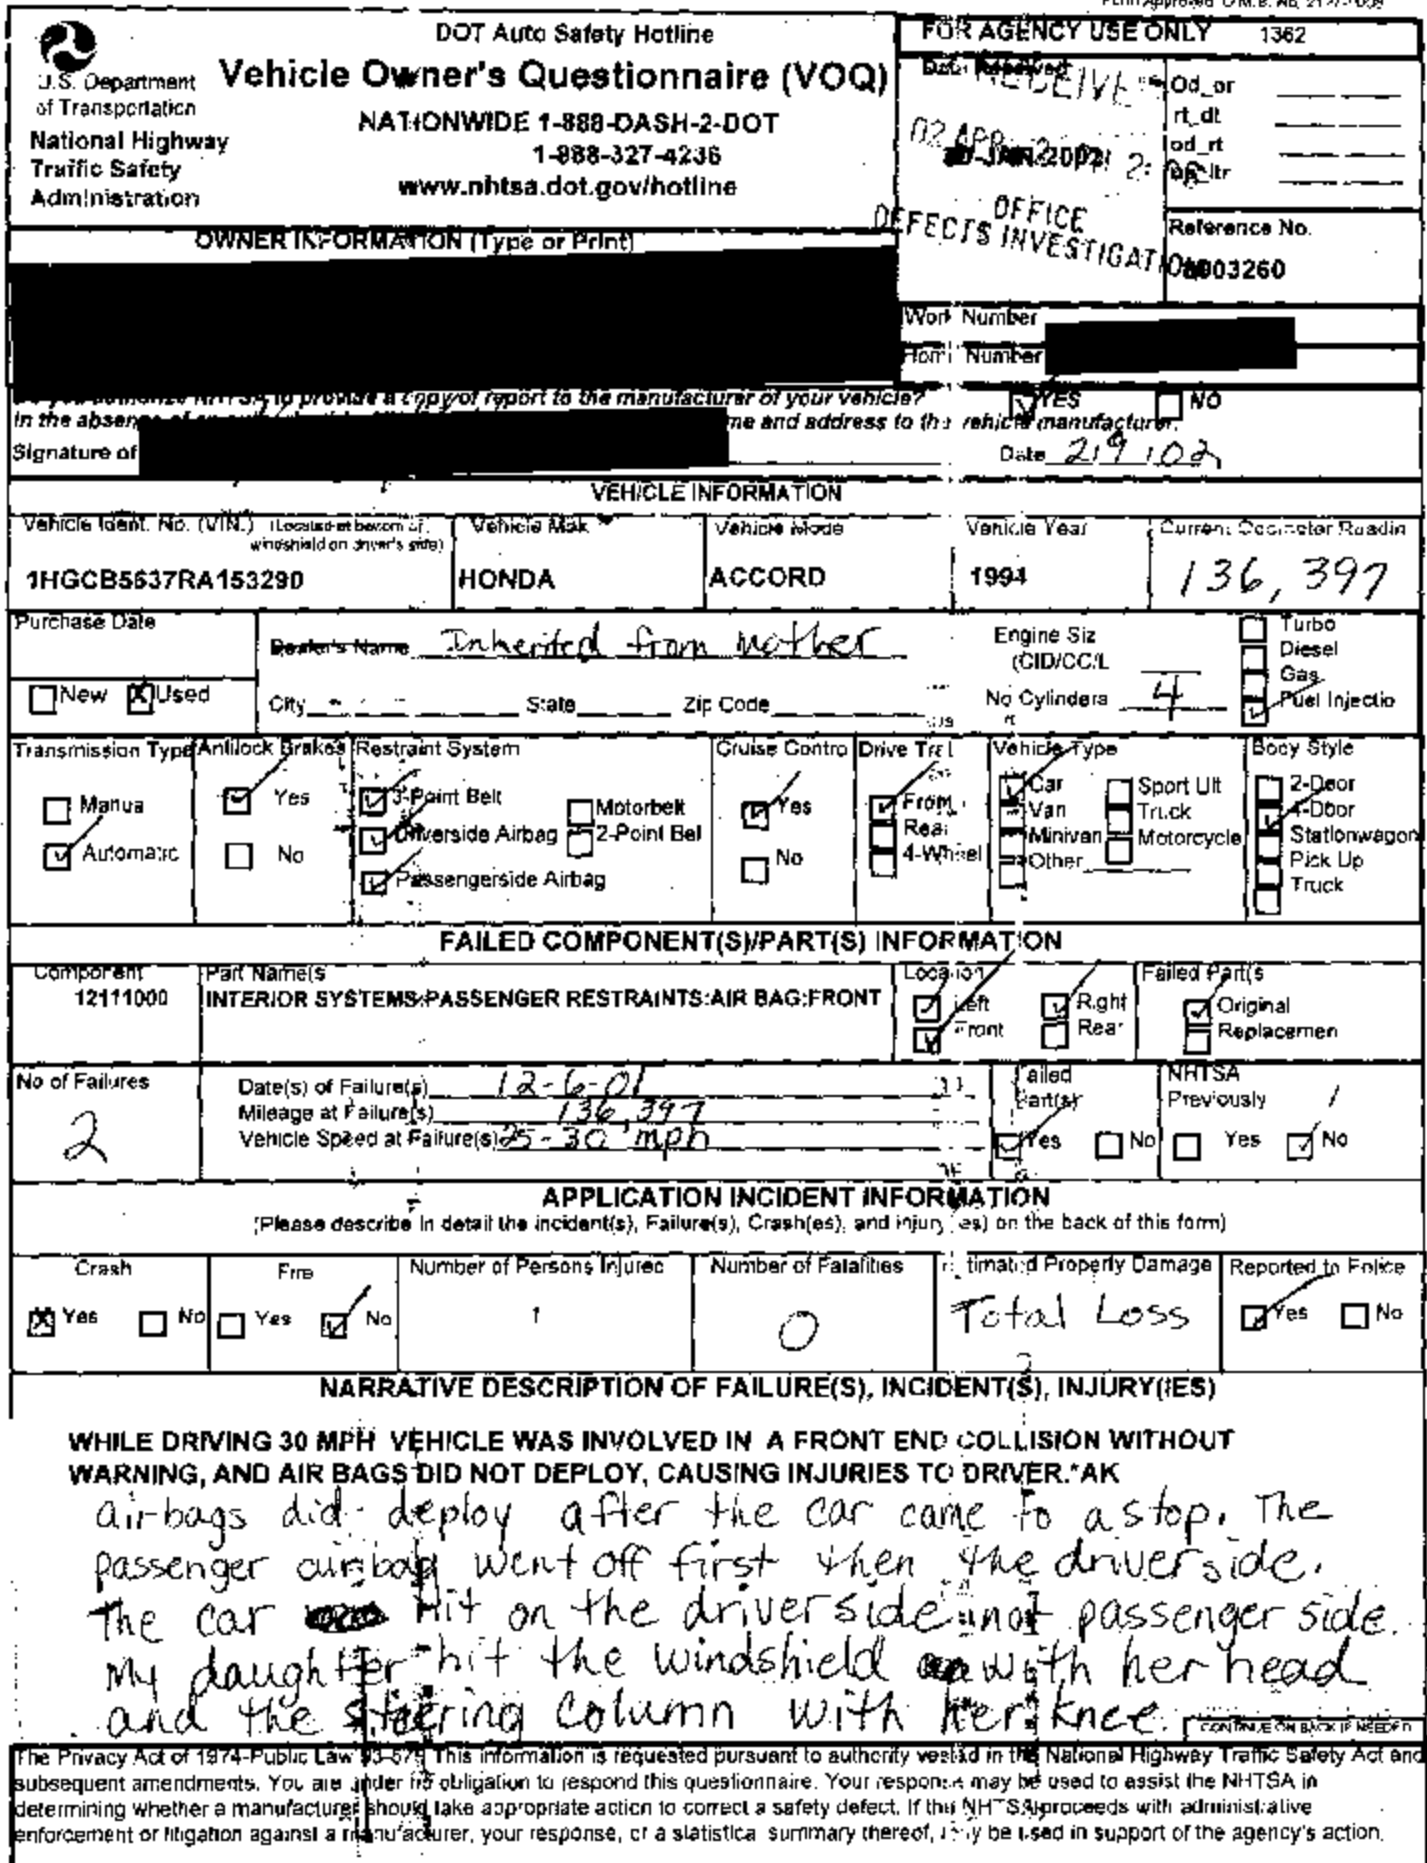 DOT Auto Safety Hotline
Vehicle Owner's Questionnaire (VOQ)
NATIONWIDE 1-888-DASH-2-DOT
1-888-327-4236
www.nhtsa.dot.gov/hotline
U.S. Department
of Transportation
National Highway
Traffic Safety
Administration
FOR AGENCY USE ONLY 1362
Date Received
Od_or
rt_dt
od_rt
OFFICE
DEFECTS INVESTIGATION
Reference No.
OWNER INFORMATION (Type or Print)
Work Number
Home Number
NHTSA to provide a copy of report to the manufacturer of your vehicle?
YES NO
In the absen me and address to the vehicle manufacturer.
Signature of
Date 2/9/02
VEHICLE INFORMATION
Vehicle Ident. No. (VIN.) (Located at bottom of
windshield on driver's side)
1HGCB5637RA153290
Vehicle Mak
HONDA
Vehicle Mode
ACCORD
Vehicle Year
1994
Current Odometer Readin
136,397
Purchase Date
New Used
Dealer's Name Inherited from Mother
City State Zip Code
Engine Siz
(CID/CC/L
No Cylinders 4
Turbo
Diesel
Gas
Fuel Injectio
Transmission Type
Manua
Automatic
Antilock Brakes
Yes
No
Restraint System
3-Point Belt
Motorbelt
Driverside Airbag
2-Point Bel
Passengerside Airbag
Cruise Contro
Yes
No
Drive Tra
Front
Rear
4-Wheel
Vehicle Type
Car
Van
Minivan
Other
Sport Ult
Truck
Motorcycle
Body Style
2-Door
4-Door
Stationwagon
Pick Up
Truck
FAILED COMPONENT(S)/PART(S) INFORMATION
Component
12111000
Part Name(s
INTERIOR SYSTEMS:PASSENGER RESTRAINTS:AIR BAG:FRONT
Location
Left
Right
Front
Rear
Failed Part(s
Original
Replacemen
No of Failures
2
Date(s) of Failure(s) 12-6-01
Mileage at Failure(s) 136,397
Vehicle Speed at Failure(s) 25-30 mph
Failed
Part(s)
Yes No
NHTSA
Previously
Yes No
APPLICATION INCIDENT INFORMATION
(Please describe in detail the incident(s), Failure(s), Crash(es), and injury(ies) on the back of this form)
Crash
Yes No
Fire
Yes No
Number of Persons Injured
1
Number of Fatalities
0
timated Property Damage
Total Loss
Reported to Police
Yes No
NARRATIVE DESCRIPTION OF FAILURE(S), INCIDENT(S), INJURY(IES)
WHILE DRIVING 30 MPH VEHICLE WAS INVOLVED IN A FRONT END COLLISION WITHOUT
WARNING, AND AIR BAGS DID NOT DEPLOY, CAUSING INJURIES TO DRIVER.*AK
airbags did deploy after the car came to a stop. The
passenger airbag went off first then the driverside.
The car hit on the driverside not passenger side.
My daughter hit the windshield with her head
and the steering column with her knee.
CONTINUE ON BACK IF NEEDED
The Privacy Act of 1974-Public Law 93-579 This information is requested pursuant to authority vested in the National Highway Traffic Safety Act and
subsequent amendments. You are under no obligation to respond this questionnaire. Your response may be used to assist the NHTSA in
determining whether a manufacturer should take appropriate action to correct a safety defect. If the NHTSA proceeds with administrative
enforcement or litigation against a manufacturer, your response, or a statistical summary thereof, may be used in support of the agency's action.